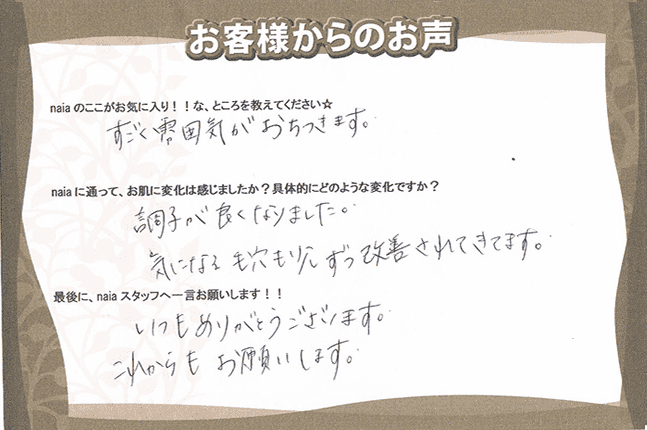 お客様からのお声
naiaのここがお気に入り！！な、ところを教えてください☆
すごく雰囲気がおちつきます。
naiaに通って、お肌に変化は感じましたか？具体的にどのような変化ですか？
調子が良くなりました。
気になる毛穴も少しずつ改善されてきてます。
最後に、naiaスタッフへ一言お願いします！！
いつもありがとうございます。
これからもお願いします。